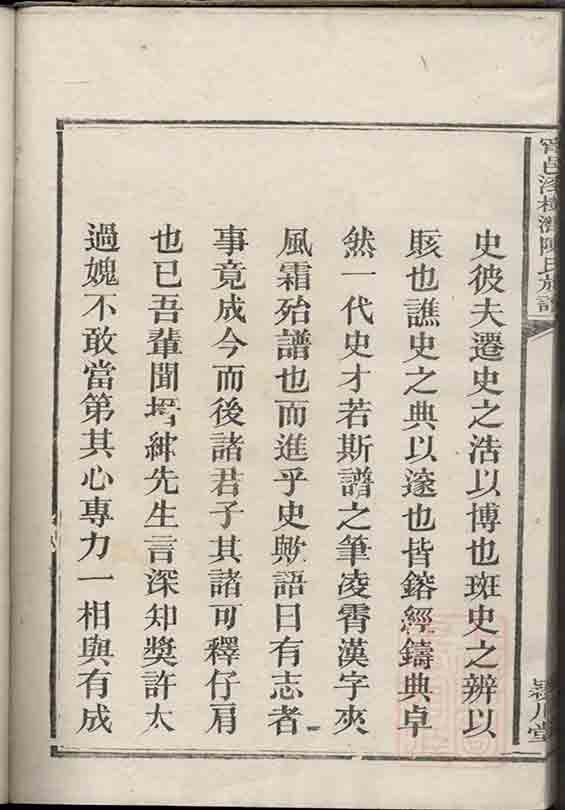 史彼夫遷史之浩以博也班史之辨以
賅也譙史之典以邃也皆鎔經鑄典卓
然一代史才若斯譜之筆凌霄漢字夾
風霜殆譜也而進乎史歟語曰有志者
事竟成今而後諸君子其諸可釋仔肩
也已吾輩聞搢紳先生言深知獎許太
過媿不敢當第其心專力一相與有成
陳氏族譜
潁川堂